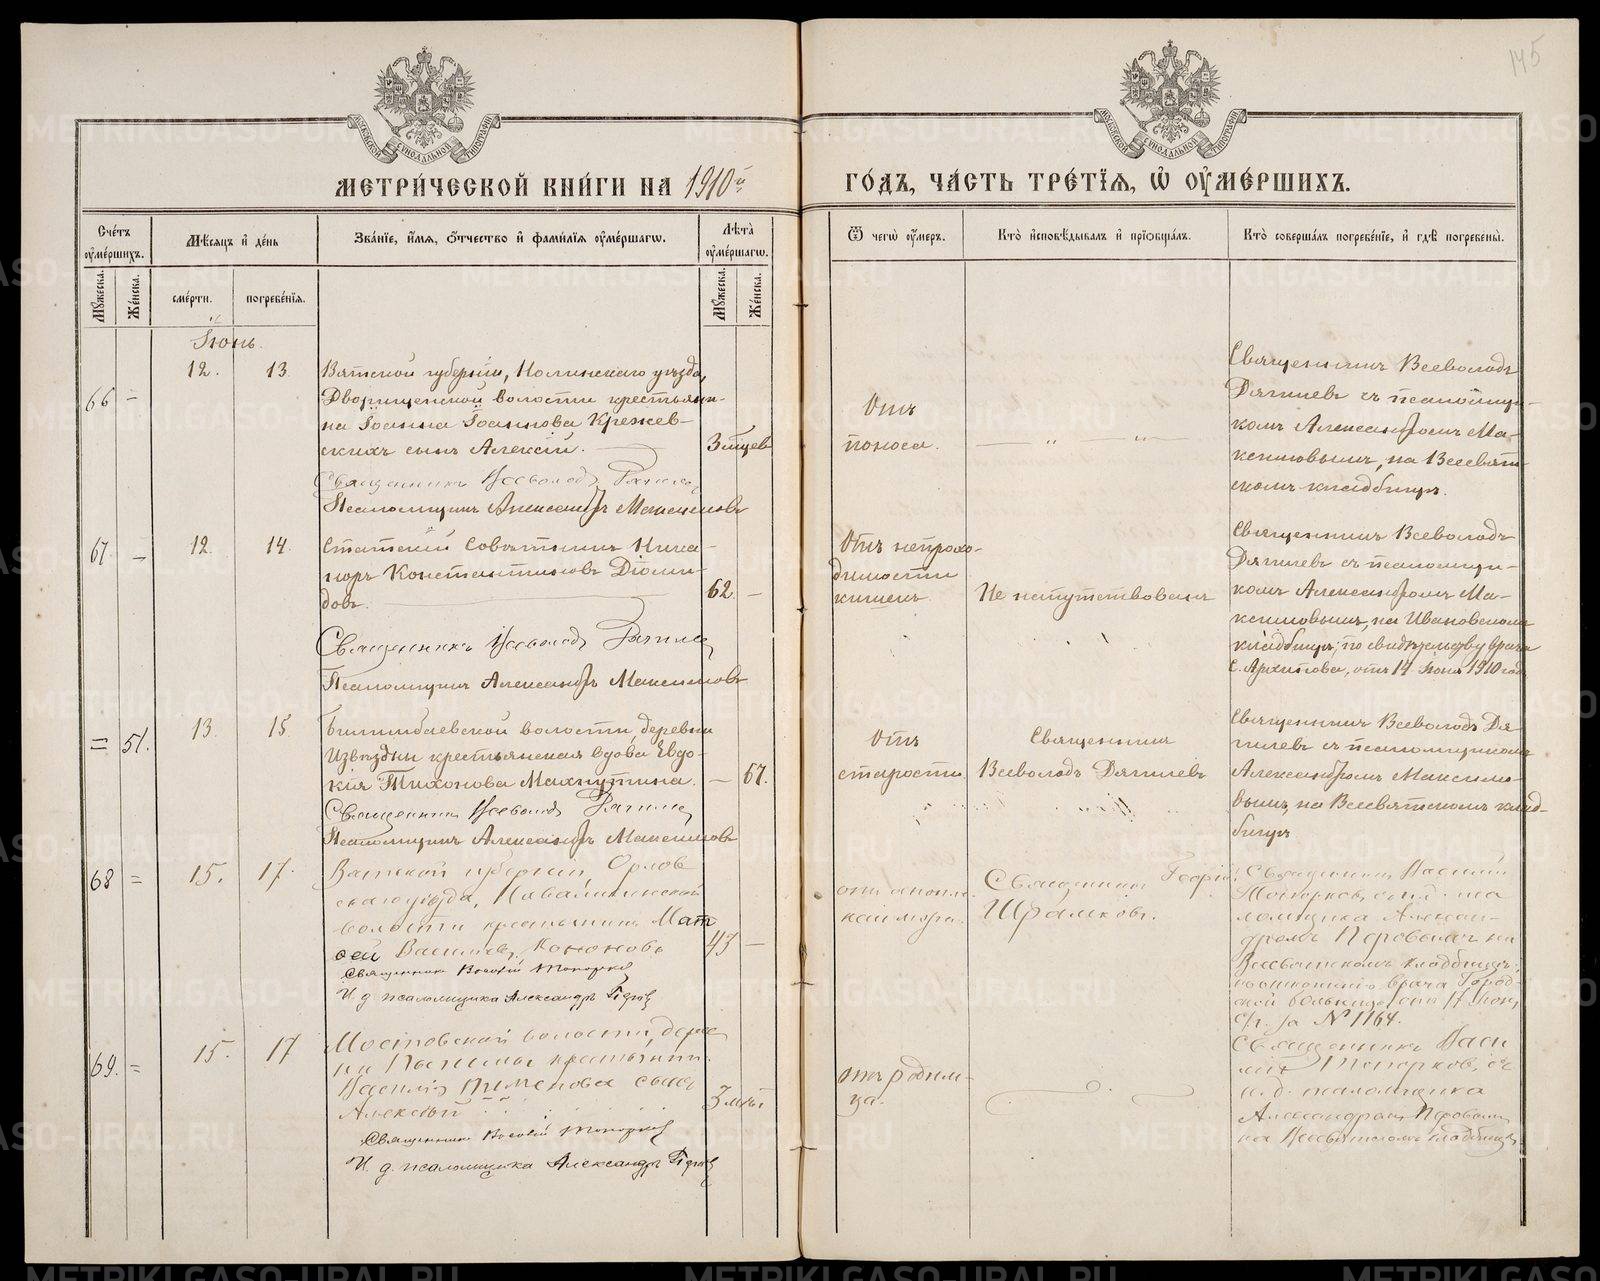 145
МЕТРИ́ЧЕСКОЙ КНИ́ГИ НА 1910й
ГО́ДЪ, ЧА́СТЬ ТРЕ́ТІЯ, Ѽ ОУ҆МЕ́РШИХЪ.
МОСКОВСКОЙ СѴНОДАЛЬНОЙ ТИПОГРАФІИ
МОСКОВСКОЙ СѴНОДАЛЬНОЙ ТИПОГРАФІИ
Сче́тъ оумершихъ.
Мѣсяцъ и де́нь
Зва́нїе, и҆мя, о҆тчество и҆ фамилїя оу҆ме́ршагѡ.
Лѣта̀ оу҆ме́ршагѡ.
Ѿ чегѡ̀ оу҆меръ.
Кто̀ и҆сповѣдывалъ и҆ прїобща́лъ.
Кто̀ соверша́лъ погребе́нїе, и҆ гдѣ̀ погребены̀.
Мужеска.
Же́нска.
сме́рти.
погребе́нїя.
Мужеска.
Же́нска.
Іюнь.
66
12.
13
Вятской губерніи, Нолинскаго уѣзда,
Дворищенской волости крестьяни-
на Іоанна Іоаннова Крежев-
скихъ сынъ Алексій.
Священникъ Всеволодъ
Псаломщикъ Александръ Максимовъ
3 мцев
Отъ
поноса.
Священникъ Всеволодъ
Дягилевъ съ псаломщи-
комъ Александромъ Ма-
ксимовымъ, на Всесвят-
скомъ кладбищѣ.
67
–
12.
14.
Статскій Совѣтникъ Ника-
норъ Константиновъ Діоми-
довъ.
Священникъ Всеволодъ
Псаломщикъ Александръ Максимовъ
62
–
Отъ непрохо-
димости
кишекъ.
Не напутствованъ
Священникъ Всеволодъ
Дягилевъ съ псаломщи-
комъ Александромъ Ма-
ксимовымъ, на Ивановскомъ
кладбищѣ; по свидѣтельству врача
С. Архипова, отъ 14 Іюня 1910 года
=
51.
13.
15
Билимбаевской волости, деревни
Извѣздны крестьянская вдова Евдо-
кія Тихонова Махнутина.
Священникъ Всеволодъ
Псаломщикъ Александръ Максимовъ
–
57.
Отъ
старости
Священникъ
Всеволодъ Дягилевъ
Священникъ Всеволодъ Дя-
гилевъ съ псаломщикомъ
Александромъ Максимо-
вымъ, на Всесвятскомъ клад-
бищѣ
68
=
15.
17.
Вятской губерніи, Орлов
скаго уѣзда,
волости крестьянинъ Мат
ѳей Васильевъ Кононовъ
Священникъ Василій Топорковъ
И. д. псаломщика Александръ Перов
43
–
отъ апопле-
Священникъ Георгій
Шрамковъ.
Священникъ Василій
Топорковъ, съ и. д. пса
ломщика Алексан-
дромъ Перовымъ на
Всесвятскомъ кладбищѣ;
по отношенію врача Город-
ской больницы отъ 17 Іюня
с/г. за № 1164.
69.
=
15.
17
Мостовской волости, дерев
ни крестьянина
Василія Пименова сынъ
Алексѣй
Священникъ Василій Топорковъ
И. д. псаломщика Александръ Перов
3 мѣс.
отъ родим-
ца.
Священникъ Васи
лій Топорковъ, съ
и. д. псаломщика
Александромъ Перовымъ
на Всесвятскомъ кладбищѣ
METRIKI.GASO-URAL.RU